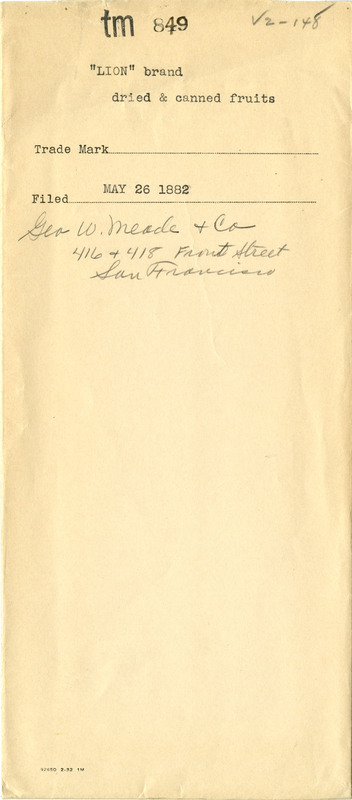 tm 849
V2-148
"LION" brand
dried & canned fruits
Trade Mark
Filed MAY 26 1882
Geo W. Meade & Co
416 & 418 Front Street
San Francisco
2-32 1M